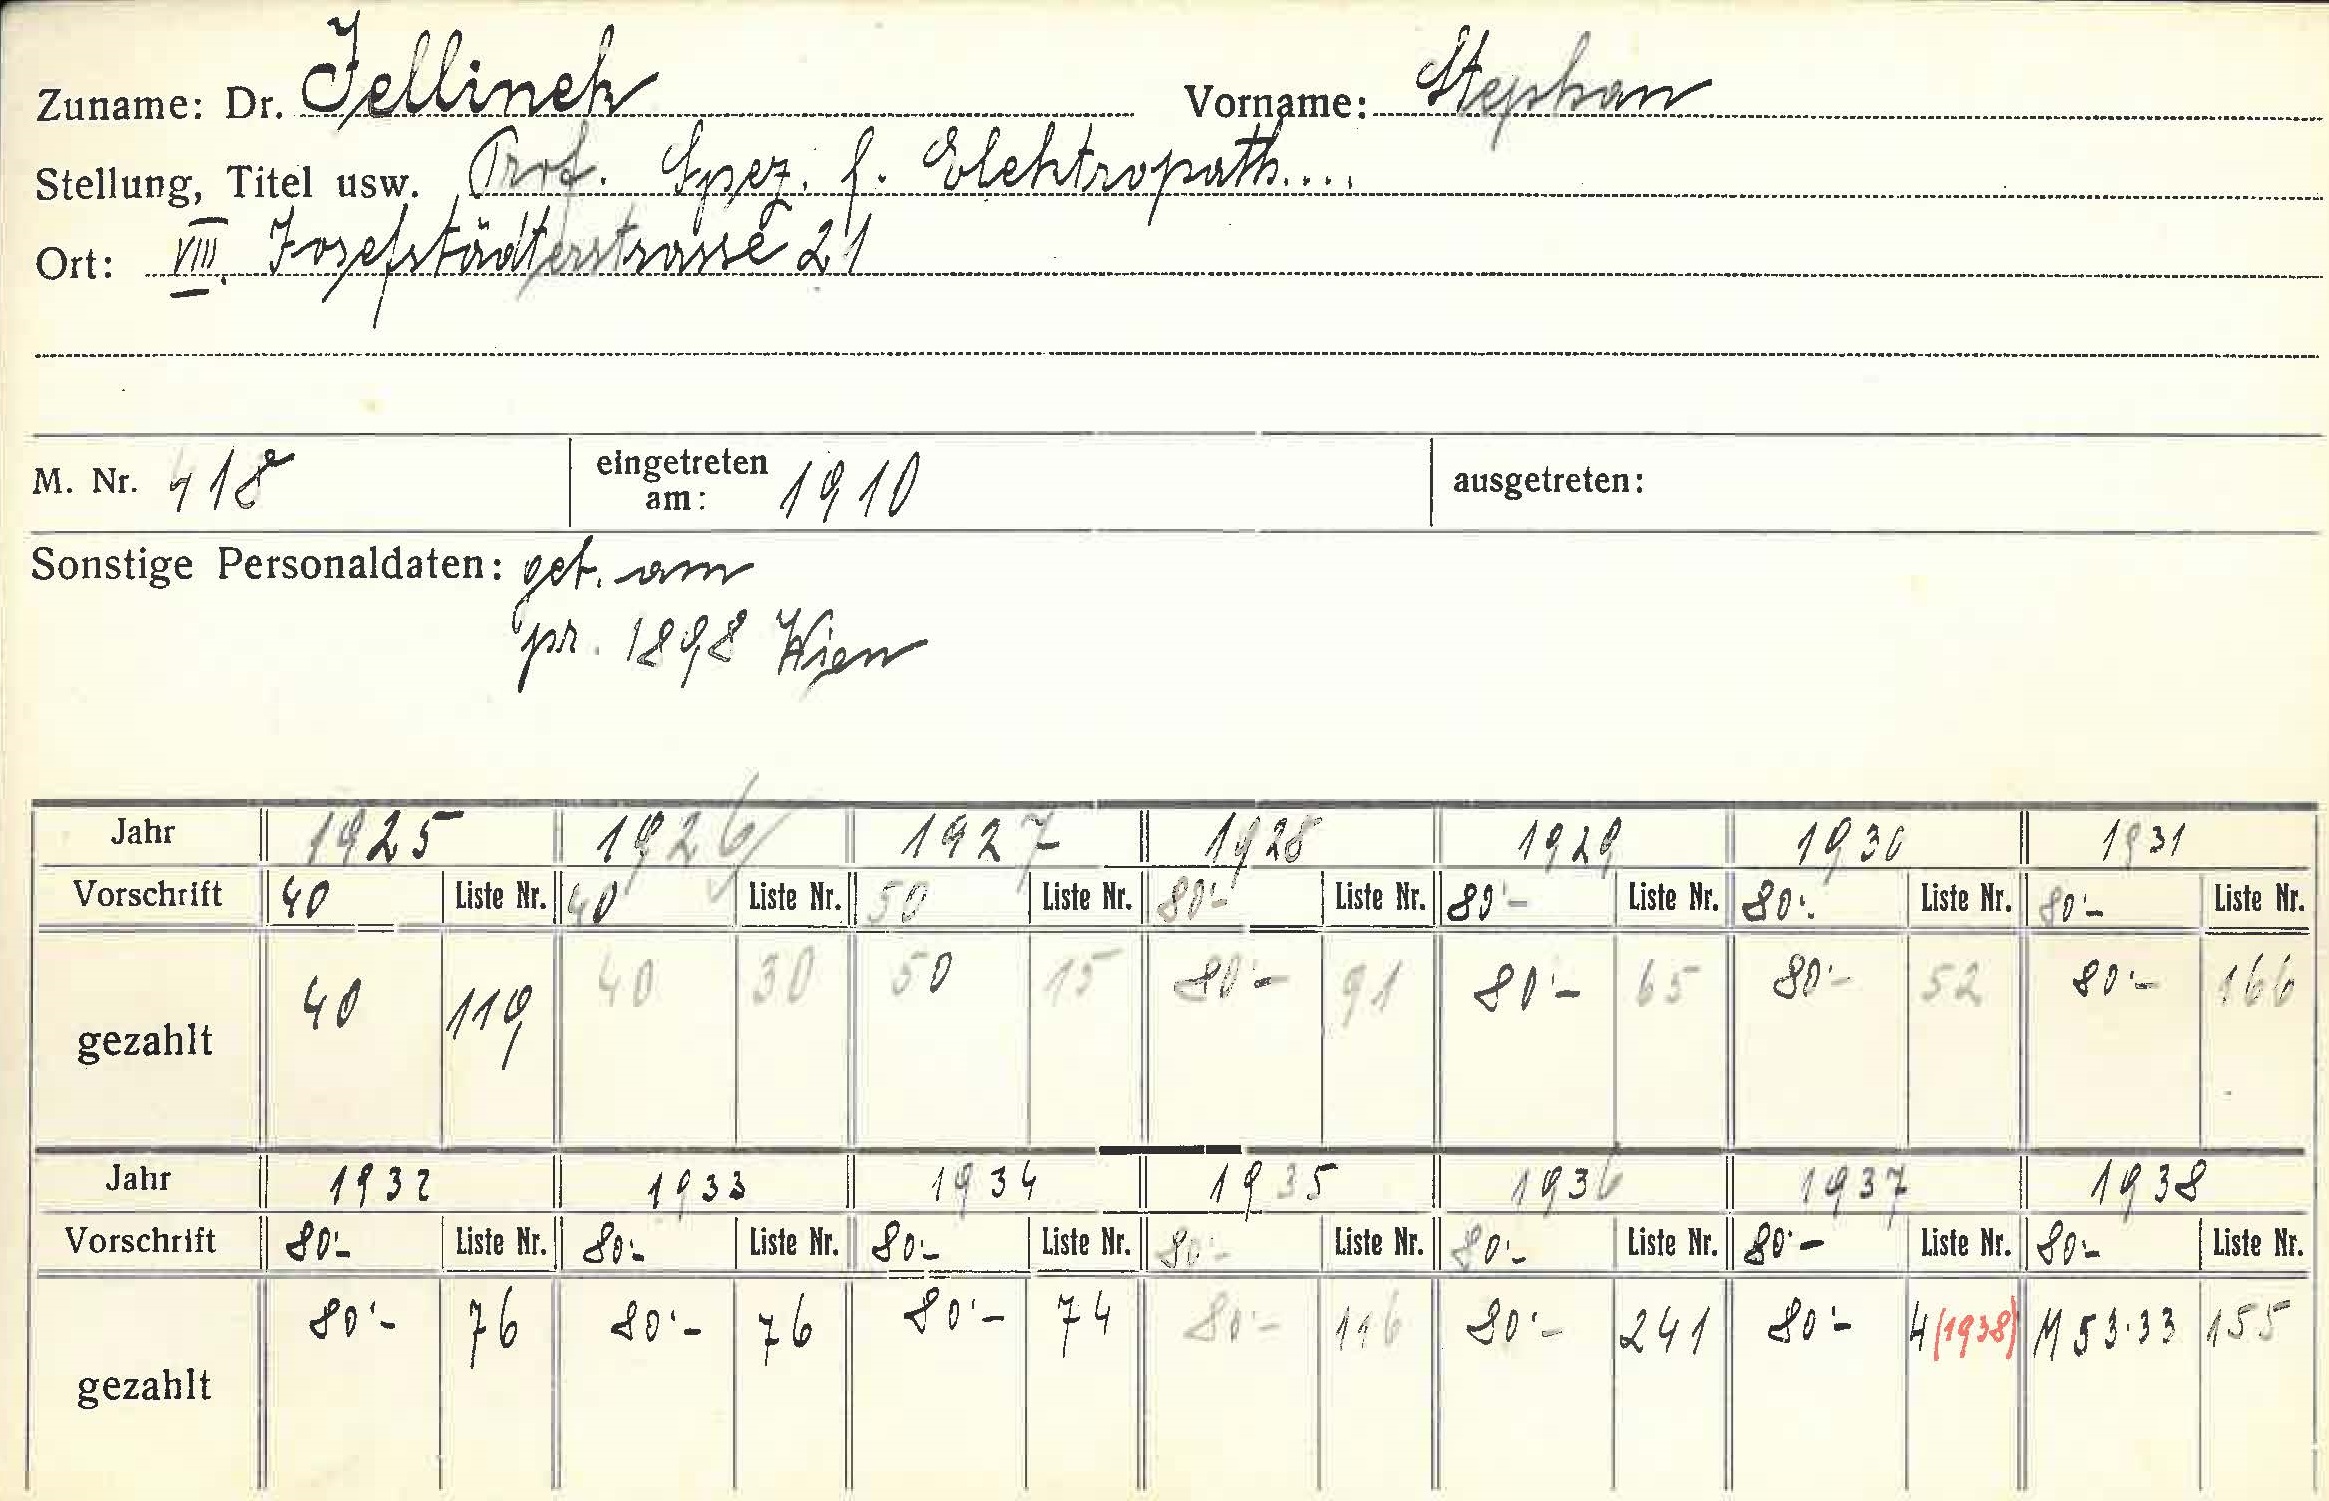 Zuname: Dr. Jellinek Vorname: Stephan
Stellung, Titel usw. Prof. Spez. f. Elektropath....
Ort: VIII. Josefstädterstrasse 21
M. Nr. 418 eingetreten am: 1910 ausgetreten:
Sonstige Personaldaten: geb. am
pr. 1898 Wien
Jahr 1925 1926 1927 1928 1929 1930 1931
Vorschrift 40 Liste Nr. 40 Liste Nr. 50 Liste Nr. 80·- Liste Nr. 80·- Liste Nr. 80·- Liste Nr. 80·- Liste Nr.
gezahlt 40 119 40 30 50 15 80·- 91 80·- 65 80·- 52 80·- 166
Jahr 1932 1933 1934 1935 1936 1937 1938
Vorschrift 80·- Liste Nr. 80·- Liste Nr. 80·- Liste Nr. 80·- Liste Nr. 80·- Liste Nr. 80·- Liste Nr. 80·- Liste Nr.
gezahlt 80·- 76 80·- 76 80·- 74 80·- 116 80·- 241 80·- 4(1938) M 53·33 155